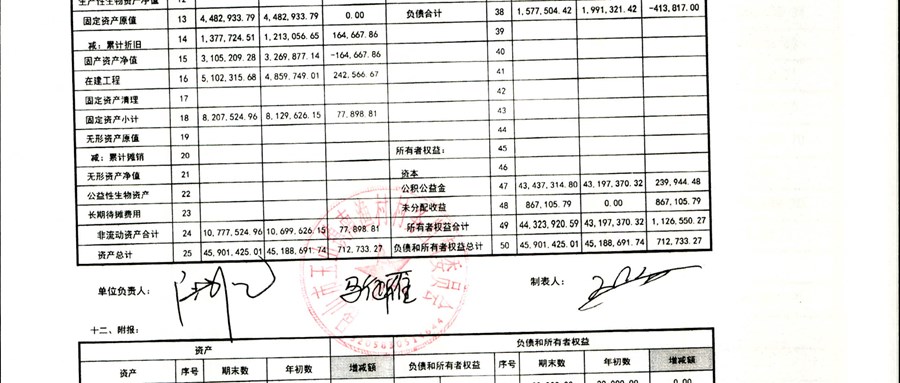 固定资产原值 13 4,482,933.79 4,482,933.79 0.00 负债合计 38 1,577,504.42 1,991,321.42 -413,817.00
减：累计折旧 14 1,377,724.51 1,213,056.65 164,667.86 39
固产资产净值 15 3,105,209.28 3,269,877.14 -164,667.86 40
在建工程 16 5,102,315.68 4,859,749.01 242,566.67 41
固定资产清理 17 42
固定资产小计 18 8,207,524.96 8,129,626.15 77,898.81 43
无形资产原值 19 44
减：累计摊销 20 所有者权益： 45
无形资产净值 21 资本 46
公益性生物资产 22 公积公益金 47 43,437,314.80 43,197,370.32 239,944.48
长期待摊费用 23 未分配收益 48 867,105.79 0.00 867,105.79
非流动资产合计 24 10,777,524.96 10,699,626.15 77,898.81 所有者权益合计 49 44,323,920.59 43,197,370.32 1,126,550.27
资产总计 25 45,901,425.01 45,188,691.74 712,733.27 负债和所有者权益总计 50 45,901,425.01 45,188,691.74 712,733.27
单位负责人： 制表人：
十二、附报：
资产 负债和所有者权益
资产 序号 期末数 年初数 增减额 负债和所有者权益 序号 期末数 年初数 增减额